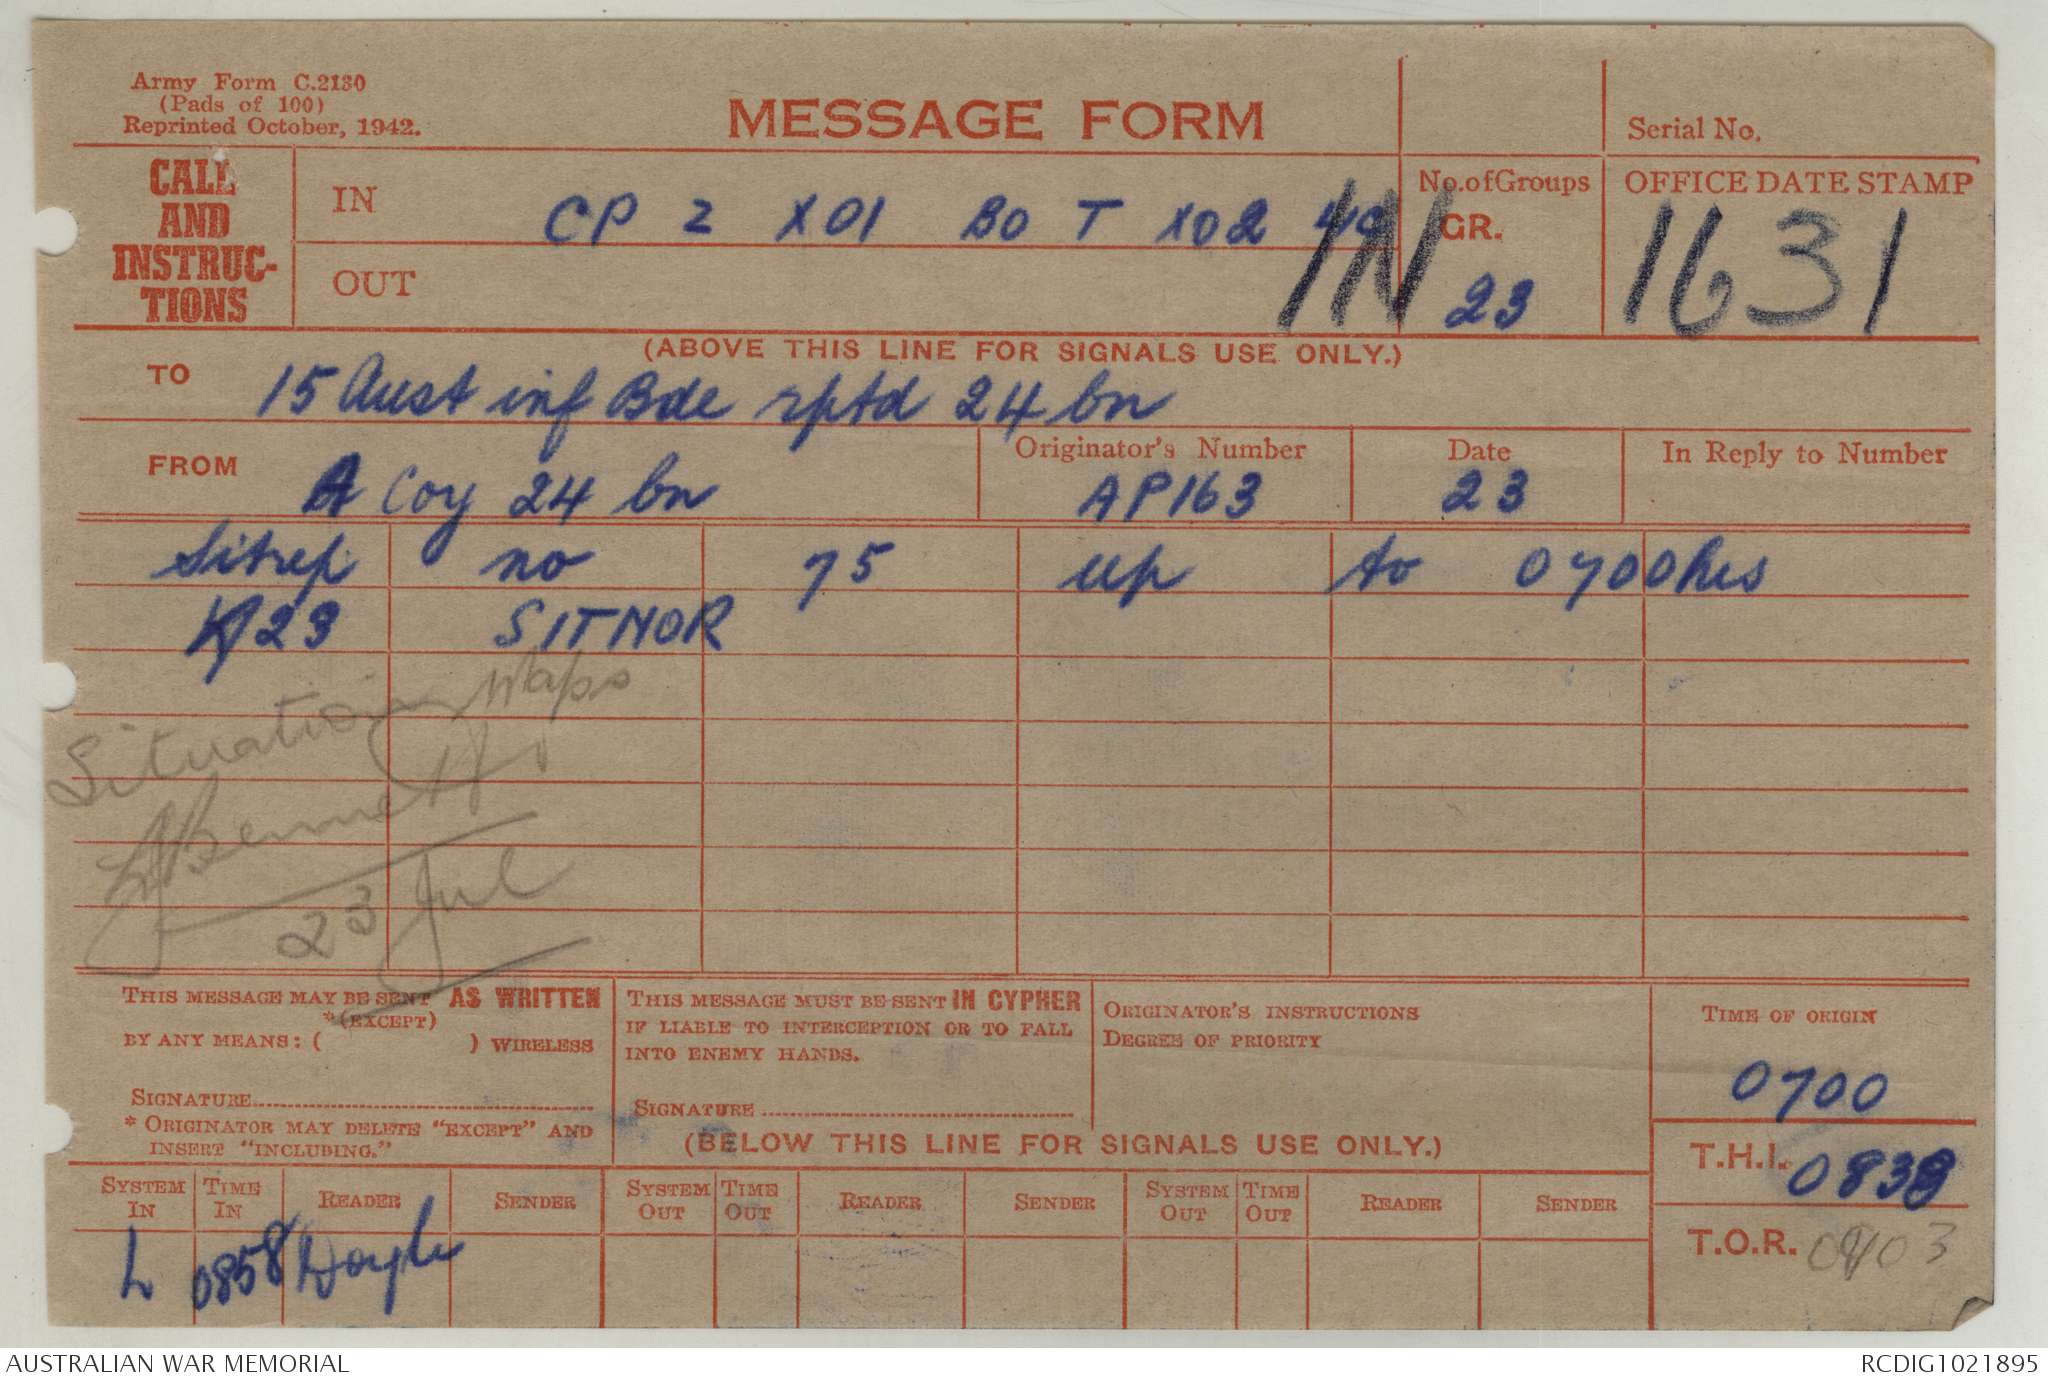 Army Form C.2130
(Pads of 100)
Reprinted October, 1942.
MESSAGE FORM
Serial No.
CALL AND INSTRUC-TIONS
IN CP 2 X01 BO T X02 4C IN
OUT
No. of Groups
GR.
23
OFFICE DATE STAMP
1631
(ABOVE THIS LINE FOR SIGNALS USE ONLY.)
TO 15 Aust inf Bde rptd 24 bn
FROM A Coy 24 bn
Originator's Number
AP163
Date
23
In Reply to Number
Sitrep no 75 up to 0700hrs
23 SITNOR
Situation Maps
Bennett
23 Jul
THIS MESSAGE MAY BE SENT AS WRITTEN
*(EXCEPT)
BY ANY MEANS: ( ) WIRELESS
SIGNATURE
* ORIGINATOR MAY DELETE "EXCEPT" AND
INSERT "INCLUDING."
THIS MESSAGE MUST BE SENT IN CYPHER
IF LIABLE TO INTERCEPTION OR TO FALL
INTO ENEMY HANDS.
SIGNATURE
ORIGINATOR'S INSTRUCTIONS
DEGREE OF PRIORITY
TIME OF ORIGIN
0700
(BELOW THIS LINE FOR SIGNALS USE ONLY.)
T.H.I. 0839
T.O.R. 0903
SYSTEM IN TIME IN READER SENDER SYSTEM OUT TIME OUT READER SENDER SYSTEM OUT TIME OUT READER SENDER
L 0858 Doyle
AUSTRALIAN WAR MEMORIAL
RCDIG1021895